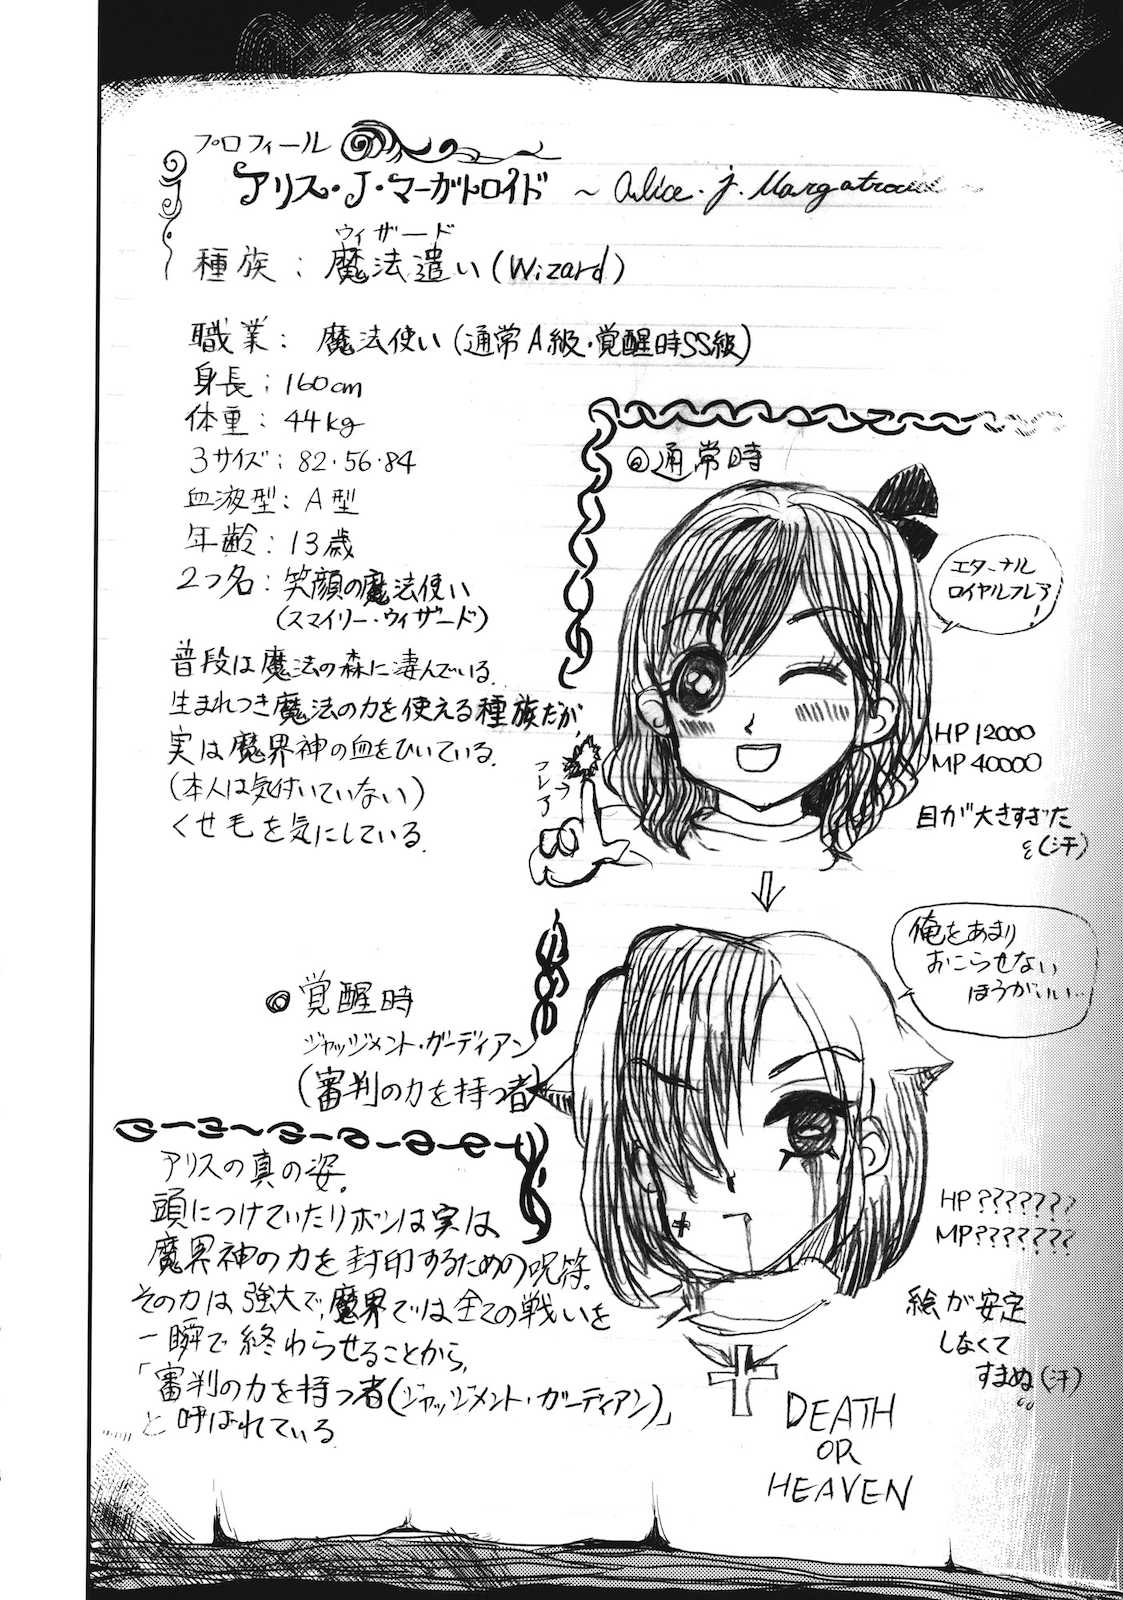 プロフィール
アリス・J・マーガトロイド ～ Alice・J・Margatroid ～
ウィザード
種族：魔法遣い(Wizard)
職業：魔法使い(通常A級・覚醒時SS級)
身長：160cm
体重：44kg
3サイズ：82・56・84
血液型：A型
年齢：13歳
2つ名：笑顔の魔法使い
(スマイリー・ウィザード)
普段は魔法の森に凄んでいる。
生まれつき魔法の力を使える種族だが、
実は魔界神の血をひいている。
(本人は気付いていない)
くせ毛を気にしている。
◎通常時
エターナル
ロイヤルフレア
！
フレア→
HP 12000
MP 40000
目が大きすぎた
(汗)
⇩
俺をあまり
おこらせない
ほうがいい…
◎覚醒時
ジャッジメント・ガーディアン
(審判の力を持つ者)
アリスの真の姿。
頭につけていたリボンは実は
魔界神の力を封印するための呪符。
その力は強大で、魔界では全ての戦いを
一瞬で終わらせることから、
「審判の力を持つ者(ジャッジメント・ガーディアン)」
と呼ばれている
HP???????
MP???????
絵が安定
しなくて
すまぬ(汗)
DEATH
OR
HEAVEN